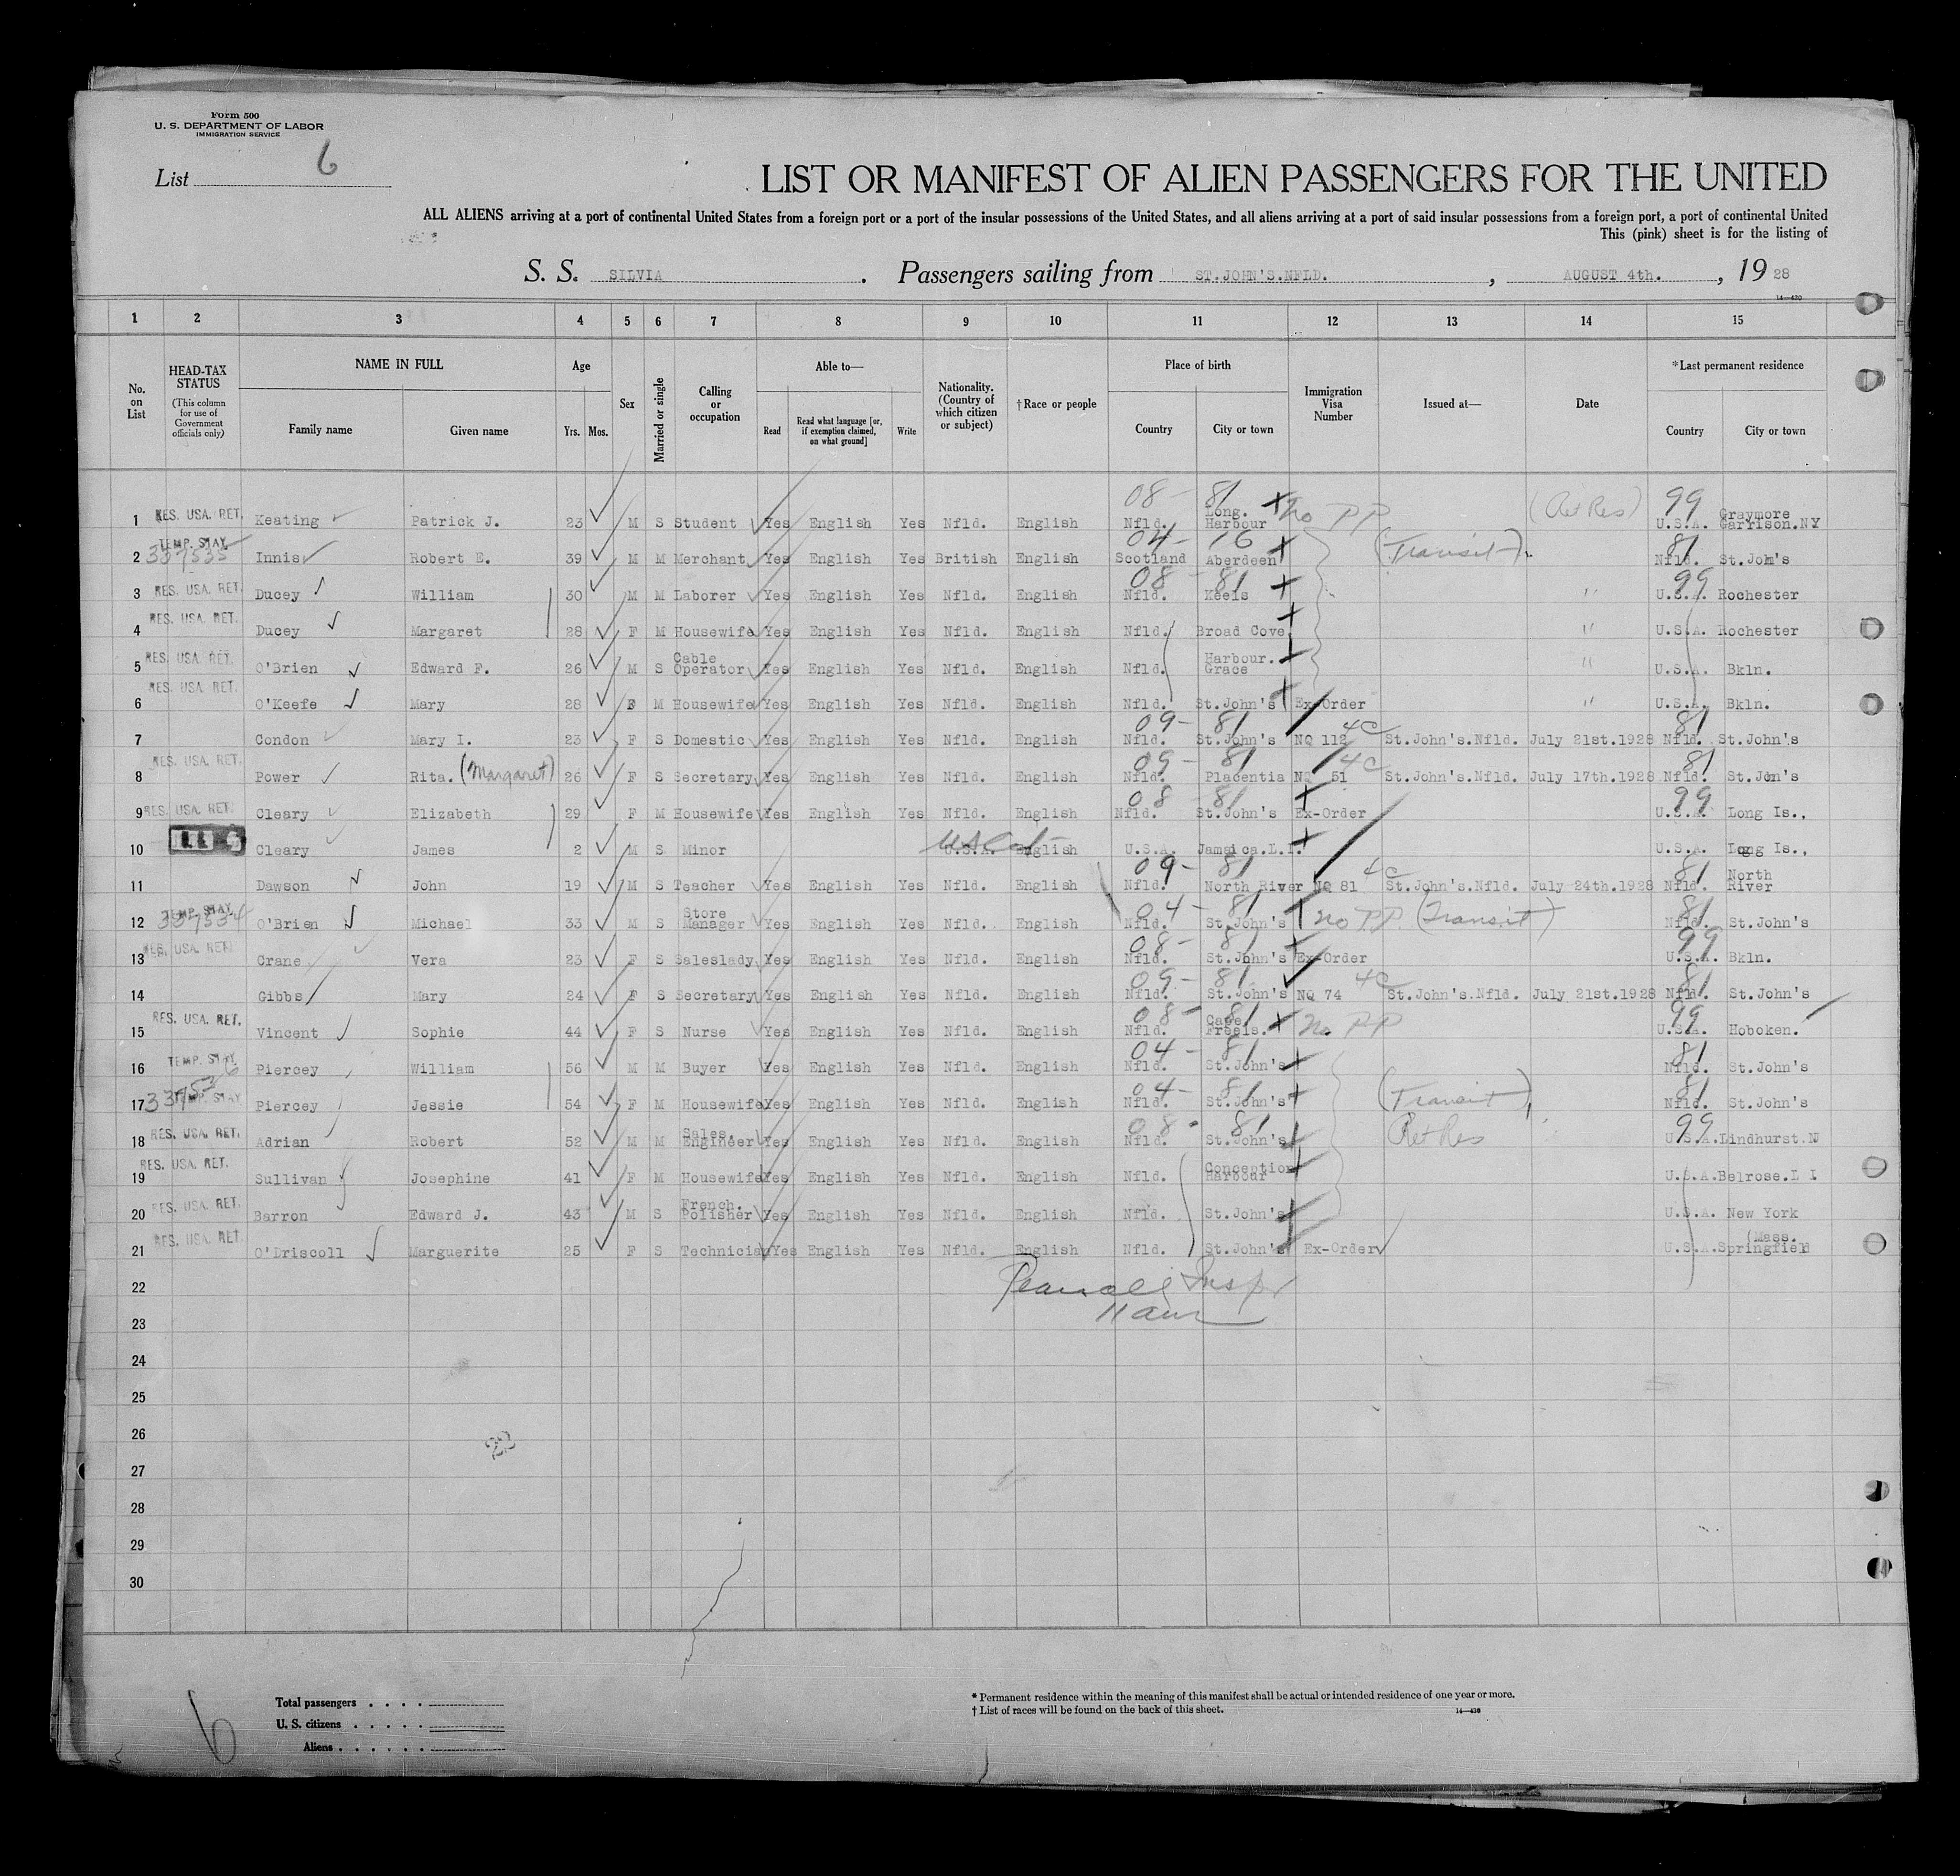 Form 500
U. S. DEPARTMENT OF LABOR
IMMIGRATION SERVICE
List 6
LIST OR MANIFEST OF ALIEN PASSENGERS FOR THE UNITED
ALL ALIENS arriving at a port of continental United States from a foreign port or a port of the insular possessions of the United States, and all aliens arriving at a port of said insular possessions from a foreign port, a port of continental United
This (pink) sheet is for the listing of
S. S. SILVIA. Passengers sailing from ST.JOHN'S.NFLD., AUGUST 4th., 1928
14—430
1 2 3 4 5 6 7 8 9 10 11 12 13 14 15
No. on List HEAD-TAX STATUS (This column for use of Government officials only) NAME IN FULL Family name Given name Age Yrs. Mos. Sex Married or single Calling or occupation Able to— Read Read what language [or, if exemption claimed, on what ground] Write Nationality. (Country of which citizen or subject) † Race or people Place of birth Country City or town Immigration Visa Number Issued at— Date *Last permanent residence Country City or town
08- 81 99
1 RES. USA. RET. Keating Patrick J. 23 M S Student Yes English Yes Nfld. English Nfld. Long. Harbour No PP (Ret Res) U.S.A. Graymore Garrison.NY
04- 16 81
2 TEMP. STAY 337535 Innis Robert E. 39 M M Merchant Yes English Yes British English Scotland Aberdeen (Transit) Nfld. St.John's
08- 81 99
3 RES. USA. RET. Ducey William 30 M M Laborer Yes English Yes Nfld. English Nfld. Keels " U.S.A. Rochester
4 RES. USA. RET. Ducey Margaret 28 F M Housewife Yes English Yes Nfld. English Nfld. Broad Cove " U.S.A. Rochester
5 RES. USA RET. O'Brien Edward F. 26 M S Cable Operator Yes English Yes Nfld. English Nfld. Harbour. Grace " U.S.A. Bkln.
6 RES. USA RET. O'Keefe Mary 28 F M Housewife Yes English Yes Nfld. English Nfld. St.John's Ex-Order " U.S.A. Bkln.
09- 81 4C 81
7 Condon Mary I. 23 F S Domestic Yes English Yes Nfld. English Nfld. St.John's NQ 112 St.John's.Nfld. July 21st.1928 Nfld. St.John's
09- 81 4C 81
8 RES. USA. RET. Power Rita. (Margaret) 26 F S Secretary Yes English Yes Nfld. English Nfld. Placentia NQ 51 St.John's.Nfld. July 17th.1928 Nfld. St.John's
08 81 99
9 RES. USA. RET. Cleary Elizabeth 29 F M Housewife Yes English Yes Nfld. English Nfld. St.John's Ex-Order U.S.A. Long Is.,
10 Cleary James 2 M S Minor U.S.A. English U.S.A. Jamaica.L.I. U.S.A. Long Is.,
09- 81 4C 81
11 Dawson John 19 M S Teacher Yes English Yes Nfld. English Nfld. North River NQ 81 St.John's.Nfld. July 24th.1928 Nfld. North River
04- 81 81
12 TEMP. STAY 337534 O'Brien Michael 33 M S Store Manager Yes English Yes Nfld. English Nfld. St.John's no PP (Transit) Nfld. St.John's
08- 81 99
13 RES. USA. RET. Crane Vera 23 F S Saleslady Yes English Yes Nfld. English Nfld. St.John's Ex-Order U.S.A. Bkln.
09- 81 4C 81
14 Gibbs Mary 24 F S Secretary Yes English Yes Nfld. English Nfld. St.John's NQ 74 St.John's.Nfld. July 21st.1928 Nfld. St.John's
08- 81 99
15 RES. USA. RET. Vincent Sophie 44 F S Nurse Yes English Yes Nfld. English Nfld. Cape Freels. No PP U.S.A. Hoboken.
04- 81 81
16 TEMP. STAY Piercey William 56 M M Buyer Yes English Yes Nfld. English Nfld. St.John's Nfld. St.John's
04- 81 81
17 TEMP. STAY Piercey Jessie 54 F M Housewife Yes English Yes Nfld. English Nfld. St.John's (Transit) Nfld. St.John's
08- 81 99
18 RES. USA. RET. Adrian Robert 52 M M Sales. Engineer Yes English Yes Nfld. English Nfld. St.John's Ret Res U.S.A. Lindhurst.NJ
19 RES. USA RET. Sullivan Josephine 41 F M Housewife Yes English Yes Nfld. English Nfld. Conception Harbour U.S.A. Belrose.L I
20 RES. USA. RET. Barron Edward J. 43 M S French. Polisher Yes English Yes Nfld. English Nfld. St.John's U.S.A. New York
21 RES. USA. RET. O'Driscoll Marguerite 25 F S Technician Yes English Yes Nfld. English Nfld. St.John's Ex-Order U.S.A. Springfield (Mass.
22 Insp
23
24
25
26
27
28
29
30
Total passengers
U. S. citizens
Aliens
6
* Permanent residence within the meaning of this manifest shall be actual or intended residence of one year or more.
† List of races will be found on the back of this sheet.
14—430